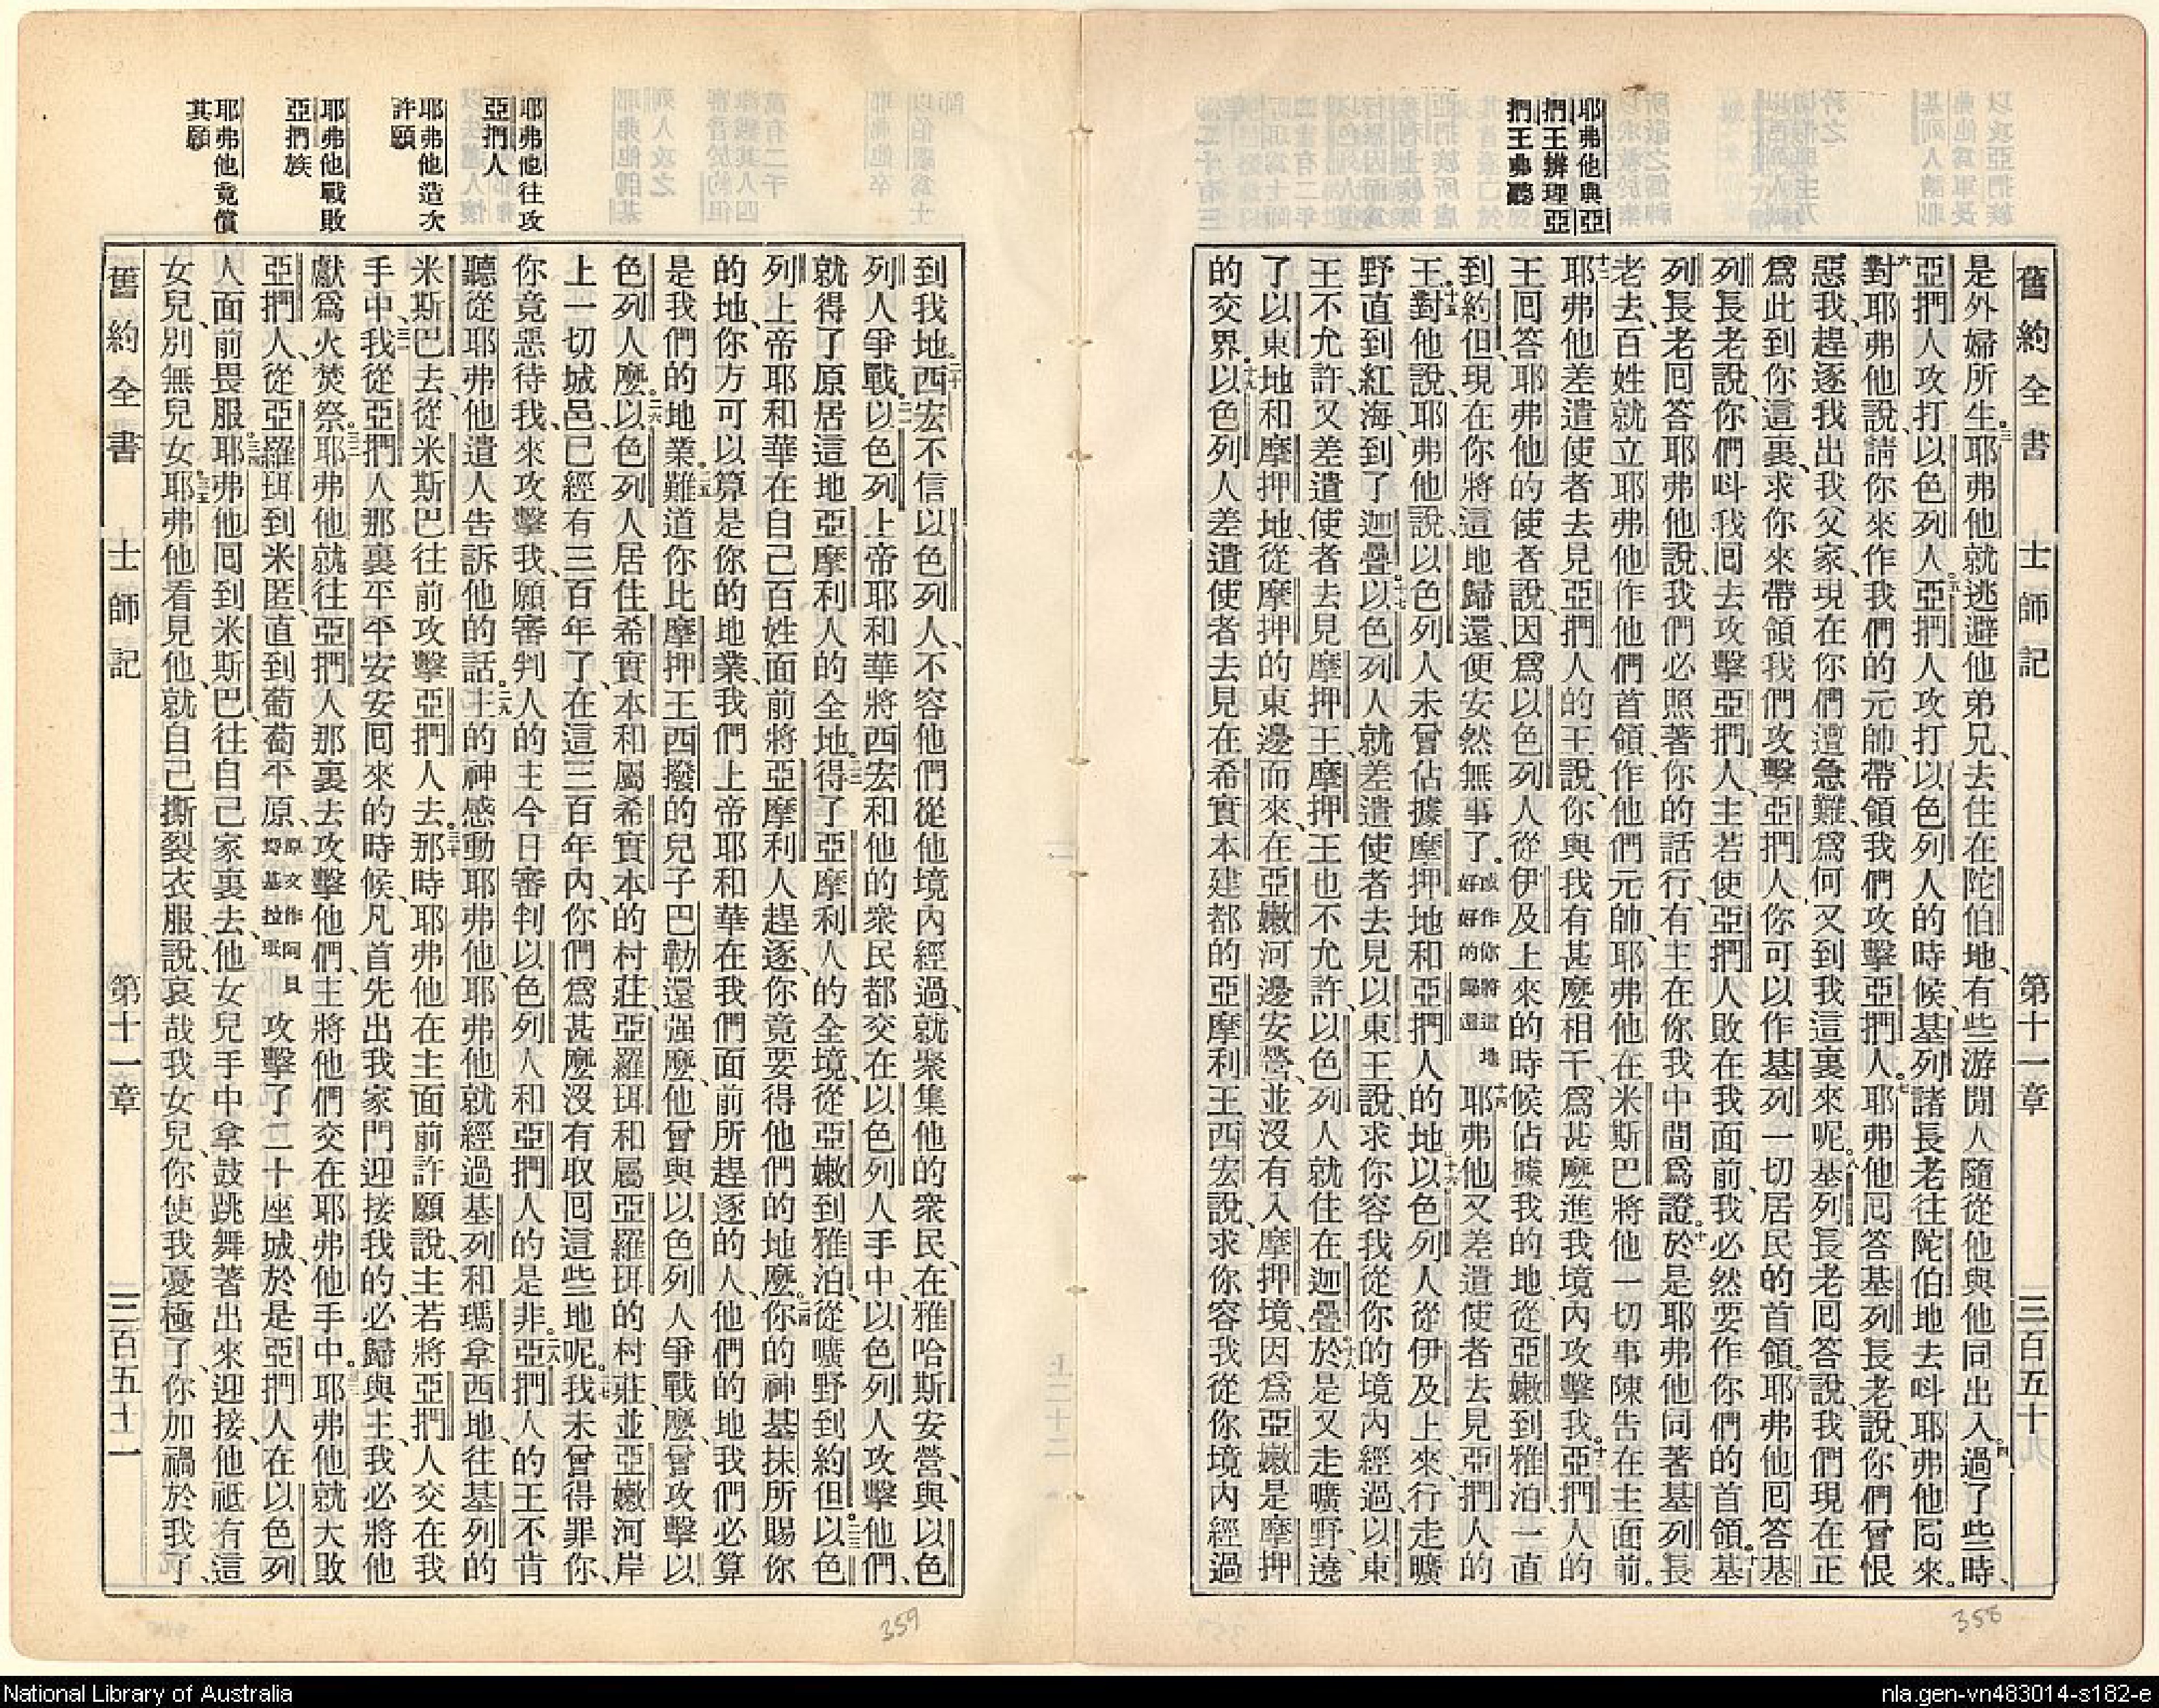 耶弗他與亞
捫王辨理亞
捫王弗聽
舊約全書 士師記 第十一章 三百五十
是外婦所生。三耶弗他就逃避他弟兄、去住在陀伯地、有些游閒人隨從他與他同出入。四過了些時、
亞捫人攻打以色列人。五亞捫人攻打以色列人的時候、基列諸長老往陀伯地去呌耶弗他回來。
六對耶弗他說、請你來作我們的元帥、帶領我們攻擊亞捫人。七耶弗他回答基列長老說、你們曾恨
惡我、趕逐我出我父家、現在你們遭急難、爲何又到我這裏來呢。八基列長老回答說、我們現在正
爲此到你這裏、求你來帶領我們攻擊亞捫人、你可以作基列一切居民的首領。九耶弗他回答基
列長老說、你們呌我回去攻擊亞捫人、主若使亞捫人敗在我面前、我必然要作你們的首領。十基
列長老回答耶弗他說、我們必照著你的話行、有主在你我中間爲證。十一於是耶弗他同著基列長
老去、百姓就立耶弗他作他們首領、作他們元帥、耶弗他在米斯巴將他一切事陳告在主面前。
十二耶弗他差遣使者去見亞捫人的王說、你與我有甚麽相干、爲甚麽進我境內攻擊我。十三亞捫人的
王回答耶弗他的使者說、因爲以色列人從伊及上來的時候佔據我的地、從亞嫩到雅泊、一直
到約但、現在你將這地歸還、便安然無事了。或作你將這地好好的歸還十四耶弗他又差遣使者去見亞捫人的
王。十五對他說、耶弗他說、以色列人未曾佔據摩押地和亞捫人的地。十六以色列人從伊及上來、行走曠
野直到紅海、到了迦疊。十七以色列人就差遣使者去見以東王說、求你容我從你的境內經過、以東
王不允許、又差遣使者去見摩押王、摩押王也不允許、以色列人就住在迦疊。十八於是又走曠野、遶
了以東地和摩押地、從摩押的東邊而來、在亞嫩河邊安營、並沒有入摩押境、因爲亞嫩是摩押
的交界。十九以色列人差遣使者去見在希實本建都的亞摩利王西宏說、求你容我從你境內經過
耶弗他往攻
亞捫人
耶弗他造次
許願
耶弗他戰敗
亞捫族
耶弗他竟償
其願
到我地。二十西宏不信以色列人、不容他們從他境內經過、就聚集他的衆民、在雅哈斯安營、與以色
列人爭戰。二一以色列上帝耶和華將西宏和他的衆民都交在以色列人手中、以色列人攻擊他們、
就得了原居這地亞摩利人的全地。二二得了亞摩利人的全境、從亞嫩到雅泊、從曠野到約但。二三以色
列上帝耶和華在自己百姓面前將亞摩利人趕逐、你竟要得他們的地麽。二四你的神基抹所賜你
的地、你方可以算是你的地業、我們上帝耶和華在我們面前所趕逐的人、他們的地我們必算
是我們的地業。二五難道你比摩押王西撥的兒子巴勒還强麽、他曾與以色列人爭戰麽、曾攻擊以
色列人麽。二六以色列人居住希實本和屬希實本的村莊、亞羅珥和屬亞羅珥的村莊、並亞嫩河岸
上一切城邑、已經有三百年了、在這三百年內、你們爲甚麽沒有取回這些地呢。二七我未曾得罪你、
你竟惡待我、來攻擊我、願審判人的主今日審判以色列人和亞捫人的是非。二八亞捫人的王不肯
聽從耶弗他遣人告訴他的話。二九主的神感動耶弗他、耶弗他就經過基列和瑪拿西地、往基列的
米斯巴去、從米斯巴往前攻擊亞捫人去。三十那時耶弗他在主面前許願說、主若將亞捫人交在我
手中、三一我從亞捫人那裏平平安安回來的時候、凡首先出我家門迎接我的、必歸與主、我必將他
獻爲火焚祭。三二耶弗他就往亞捫人那裏去攻擊他們、主將他們交在耶弗他手中。三三耶弗他就大敗
亞捫人、從亞羅珥到米匿、直到葡萄平原、原文作阿貝勒基拉珉攻擊了二十座城、於是亞捫人在以色列
人面前畏服。三四耶弗他回到米斯巴、往自己家裏去、他女兒手中拿鼓跳舞著出來迎接、他祗有這
女兒、別無兒女。三五耶弗他看見他、就自己撕裂衣服、說、哀哉我女兒、你使我憂極了、你加禍於我了、
舊約全書 士師記 第十一章 三百五十一
358
359
National Library of Australia
nla.gen-vn483014-s182-e